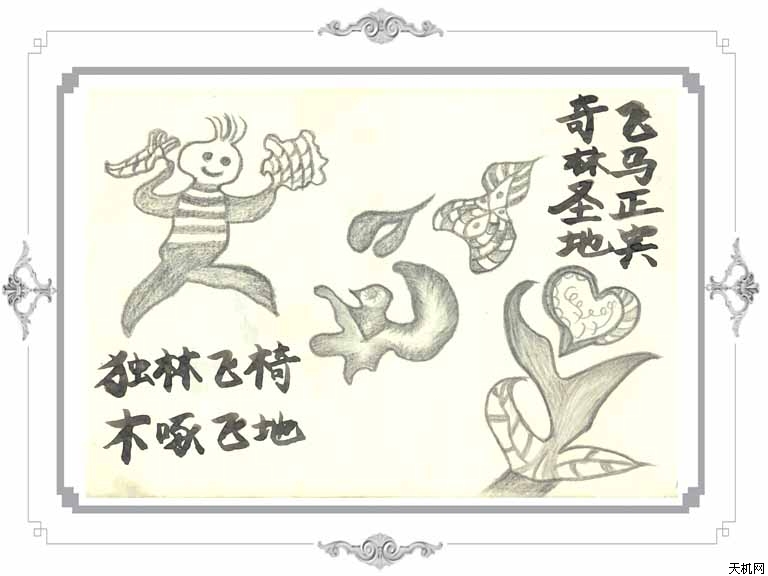 飞马正宾
奇林圣地
独林飞椅
木啄飞地
天机网